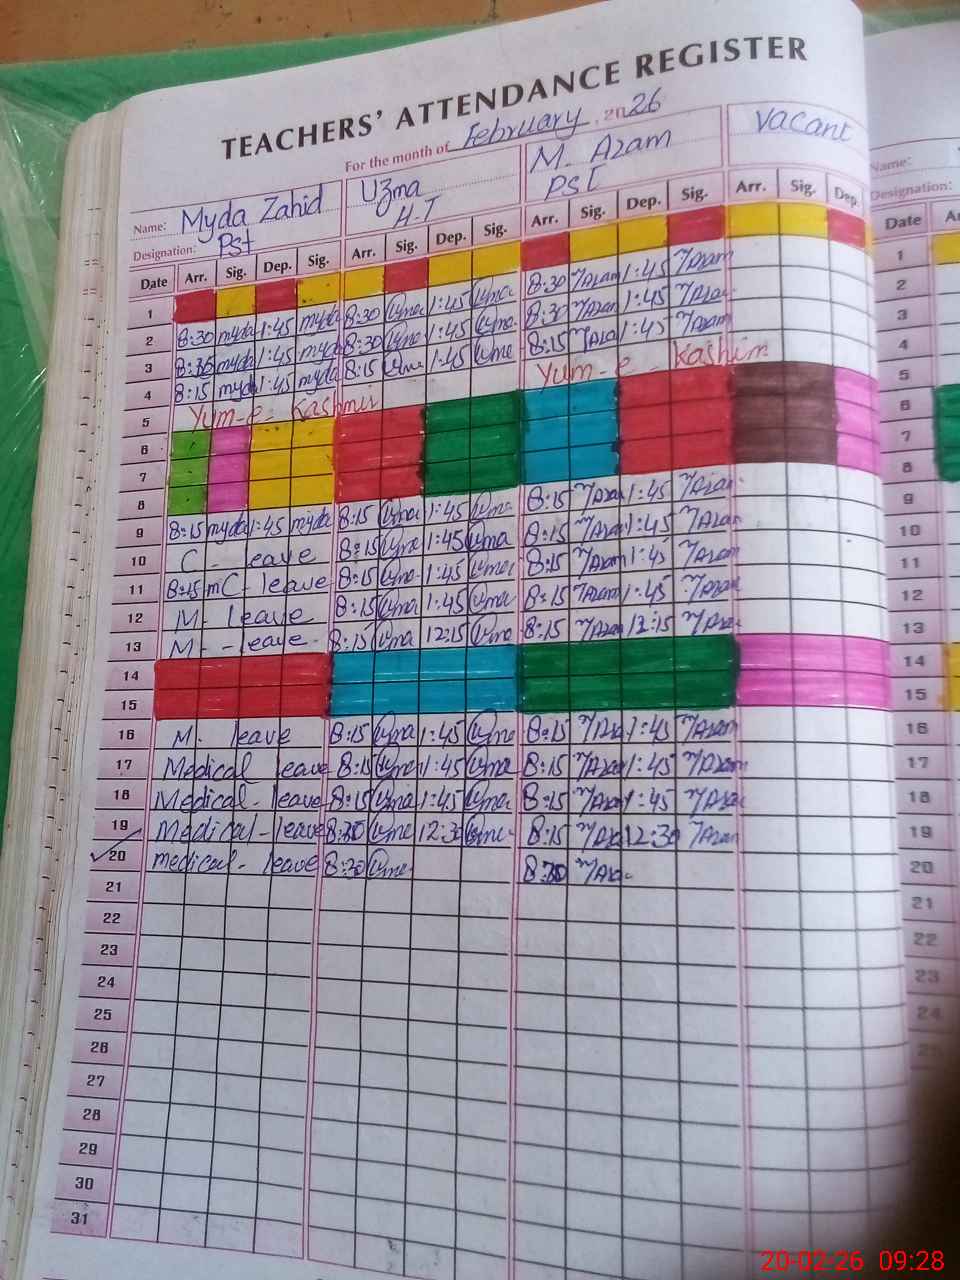 TEACHERS' ATTENDANCE REGISTER
For the month of February, 2026
Name: Myda Zahid Uzma M. Azam Vacant
Designation: Pst H-T PST
Date Arr. Sig. Dep. Sig. Arr. Sig. Dep. Sig. Arr. Sig. Dep. Sig. Arr. Sig. Dep.
1
2 8:30 myda 1:45 myda 8:30 Uzma 1:45 Uzma 8:30 Azam 1:45 Azam
3 myda 1:45 myda 8:30 Uzma 1:45 Uzma 8:30 Azam 1:45 Azam
4 8:15 myda 1:45 myda 8:15 Uzma 1:45 Uzma 8:15 Azam 1:45 Azam
5 Yum-e-Kashmir Yum-e-Kashim
6
7
8
9 8:15 myda 1:45 myda 8:15 Uzma 1:45 Uzma 8:15 Azam 1:45 Azam
10 C-leave 8:15 Uzma 1:45 Uzma 8:15 Azam 1:45 Azam
11 8:15 C-leave 8:15 Uzma 1:45 Uzma 8:15 Azam 1:45 Azam
12 M-leave 8:15 Uzma 1:45 Uzma 8:15 Azam 1:45 Azam
13 M--leave- 8:15 Uzma 12:15 Uzma 8:15 Azam 12:15 Azam
14
15
16 M. leave 8:15 Uzma 1:45 Uzma 8:15 Azam 1:45 Azam
17 Medical leave 8:15 Uzma 1:45 Uzma 8:15 Azam 1:45 Azam
18 Medical-leave 8:15 Uzma 1:45 Uzma 8:15 Azam 1:45 Azam
19 Medical-leave 8:30 Uzma 12:30 Uzma 8:15 Azam 12:30 Azam
20 medical-leave 8:30 Uzma Azam
21
22
23
24
25
26
27
28
29
30
31
Name:
Designation:
Date
1
2
3
4
5
6
7
8
9
10
11
12
13
14
15
16
17
18
19
20
21
22
23
24
20-02-26 09:28